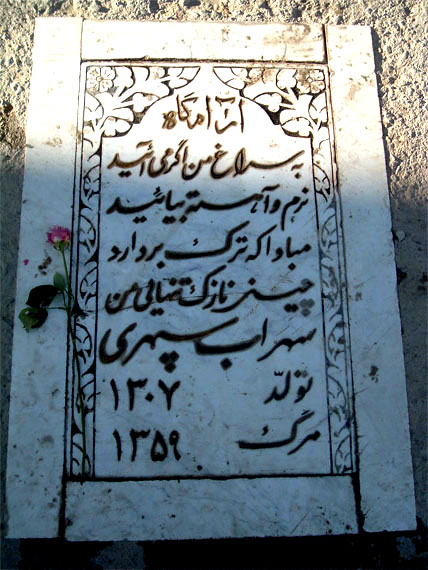 آرامگاه
بسراغ من اگر می آئید
نرم و آهسته بیائید
مبادا که ترک بردارد
چینی نازک تنهایی من
سهراب سپهری
تولد ۱۳۰۷
مرگ ۱۳۵۹